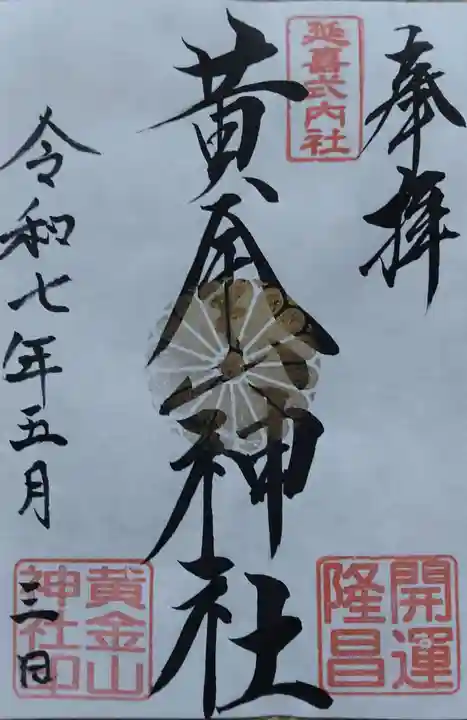 奉拝
延喜式内社
黄金山神社
開運
隆昌
令和七年五月三日
黄金山
神社印